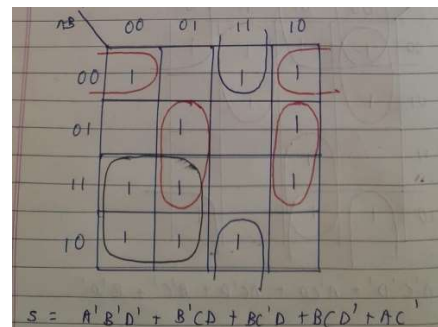 AB 00 01 11 10
00 1 1 1
01 1 1
11 1 1 1
10 1 1 1
S = A'B'D' + B'CD + BC'D + BCD' + AC'